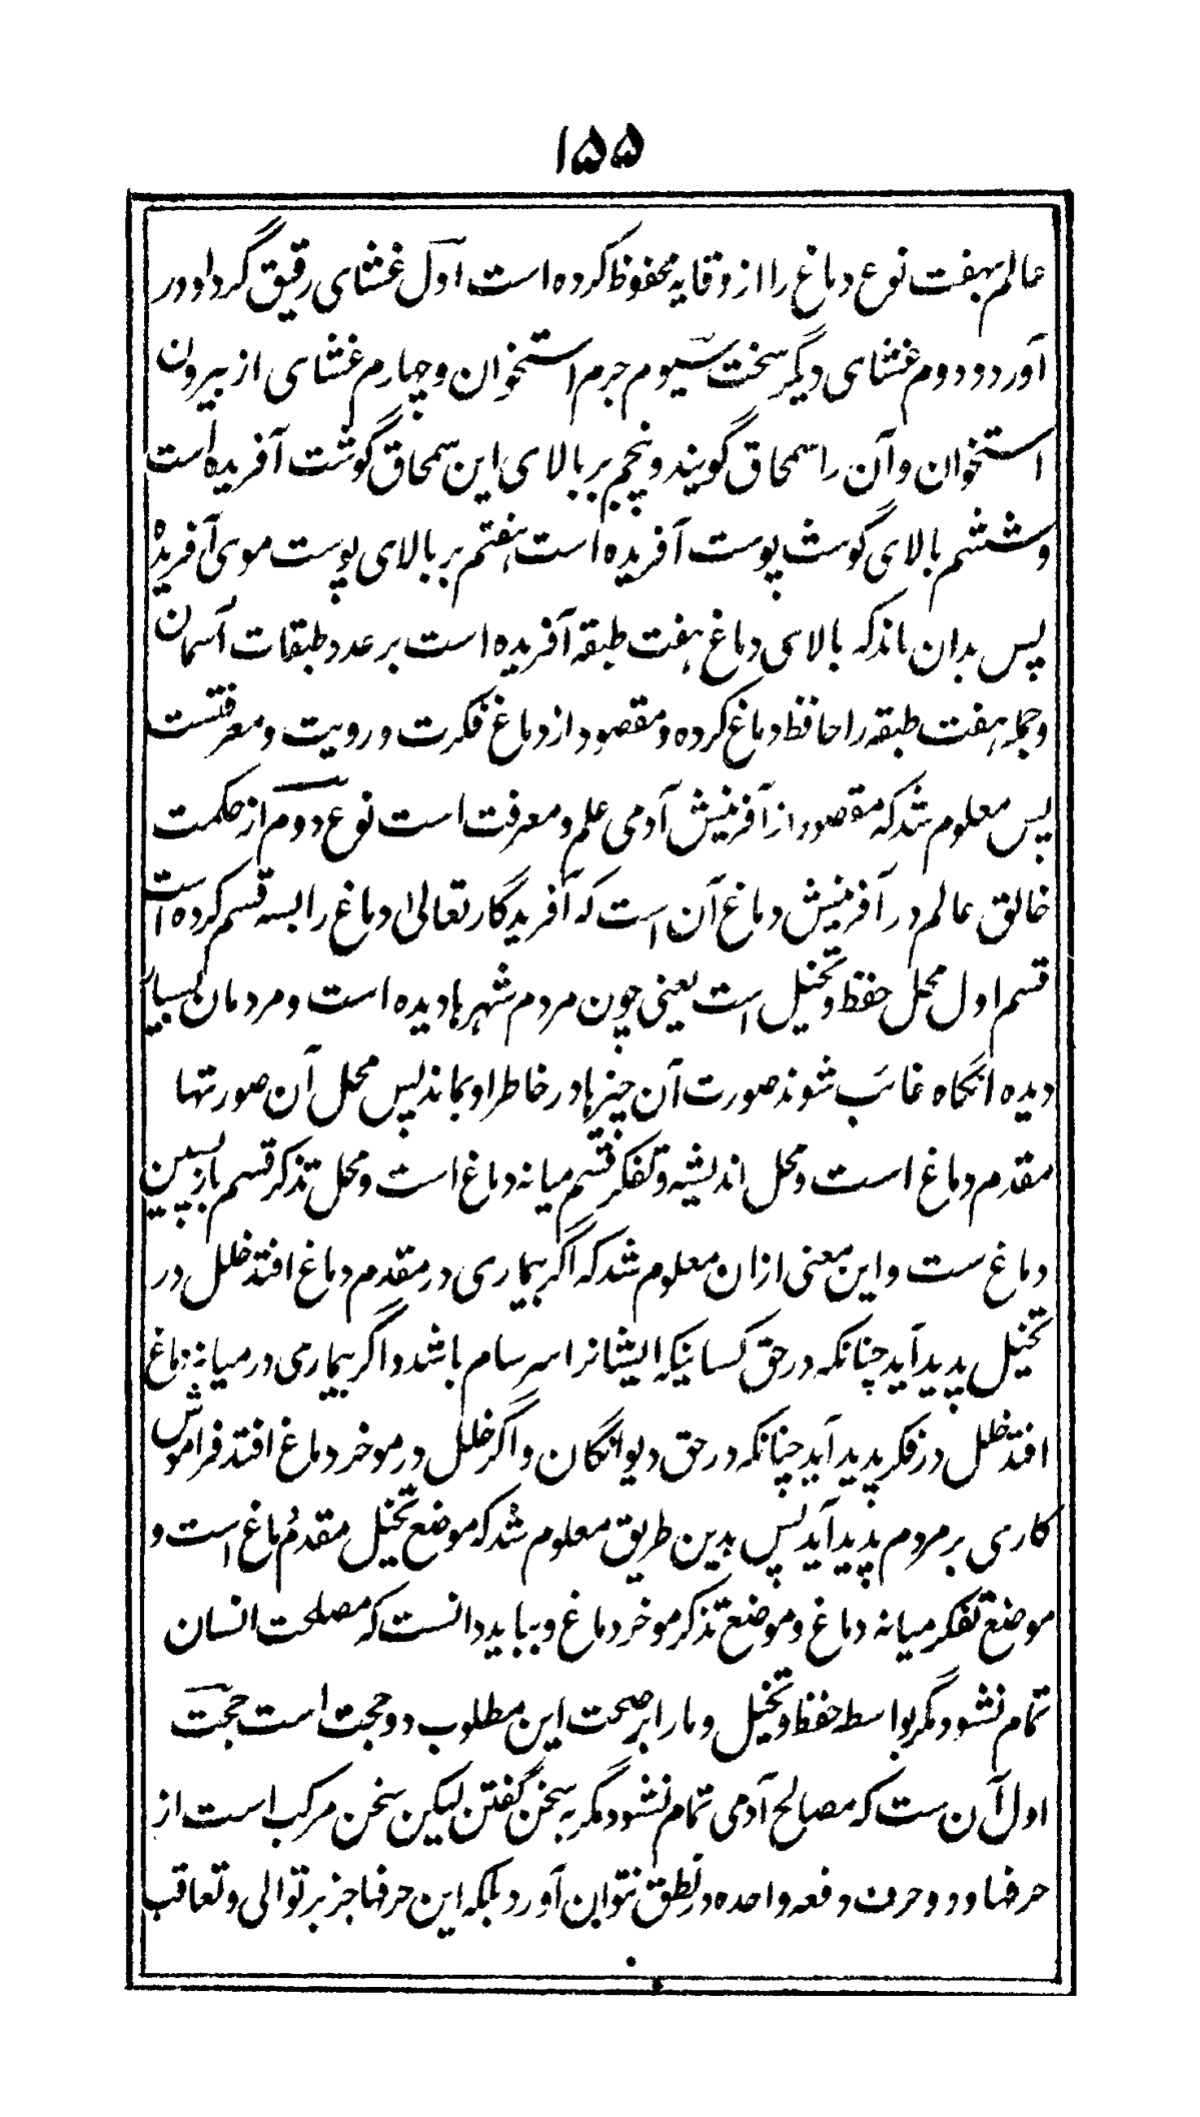 ۱۵۵
عالم بهفت نوع دماغ را از وقایه محفوظ کرده است اول غشای رقیق گرد او در
آورد و دوم غشای دیگر سخت سیوم جرم استخوان و چهارم غشای از بیرون
استخوان و آن را سمحاق گویند و پنجم بر بالای این سمحاق گوشت آفریده است
و ششم بالای گوشت پوست آفریده است هفتم بر بالای پوست موی آفریده
پس بدان ماند که بالای دماغ هفت طبقه آفریده است بر عدد طبقات آسمان
و جمله هفت طبقه را حافظ دماغ کرده و مقصود از دماغ فکرت و رویت و معرفتست
پس معلوم شد که مقصود از آفرینش آدمی علم و معرفت است نوع دوم از حکمت
خالق عالم در آفرینش دماغ آن است که آفریدگار تعالی دماغ را بسه قسم کرده است
قسم اول محل حفظ و تخیل است یعنی چون مردم شهرها دیده است و مردمان بسیار
دیده انگاه غائب شوند صورت آن چیزها در خاطر او بماند پس محل آن صورتها
مقدم دماغ است و محل اندیشه و تفکر قسم میانه دماغ است و محل تذکر قسم بازپسین
دماغ ست و این معنی ازان معلوم شد که اگر بیماری در مقدم دماغ افتد خلل در
تخیل پدید آید چنانکه در حق کسانیکه ایشانرا سرسام باشد و اگر بیماری در میانه دماغ
افتد خلل در فکر پدید آید چنانکه در حق دیوانگان و اگر خلل در موخر دماغ افتد فراموش
کاری بر مردم پدید آید پس بدین طریق معلوم شد که موضع تخیل مقدم دماغ است و
موضع تفکر میانه دماغ و موضع تذکر موخر دماغ و بباید دانست که مصلحت انسان
تمام نشود مگر بواسطه حفظ و تخیل و ما را بر صحت این مطلوب دو حجت است حجت
اول آن ست که مصالح آدمی تمام نشود مگر به سخن گفتن لیکن سخن مرکب است از
حرفها و دو حرف دفعه واحده در نطق نتوان آورد بلکه این حرفها جز بر توالی و تعاقب